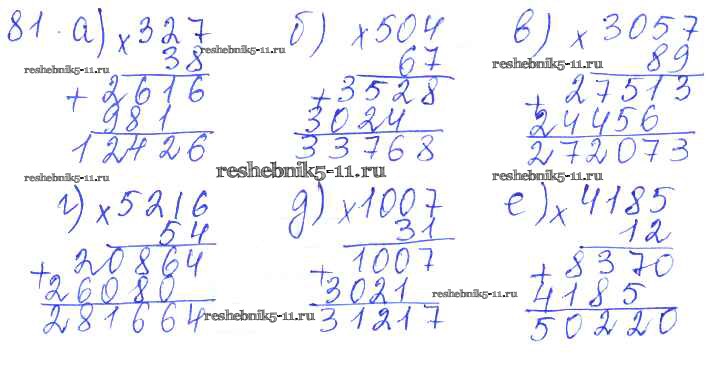 81. а) × 327 б) × 504 в) × 3057
38 67 89
+ 2616 + 3528 + 27513
981 3024 24456
12426 33768 272073
reshebnik5-11.ru
reshebnik5-11.ru
reshebnik5-11.ru
reshebnik5-11.ru
reshebnik5-11.ru
reshebnik5-11.ru
г) × 5216 д) × 1007 е) × 4185
54 31 12
+ 20864 + 1007 + 8370
26080 3021 4185
281664 31217 50220
reshebnik5-11.ru
reshebnik5-11.ru